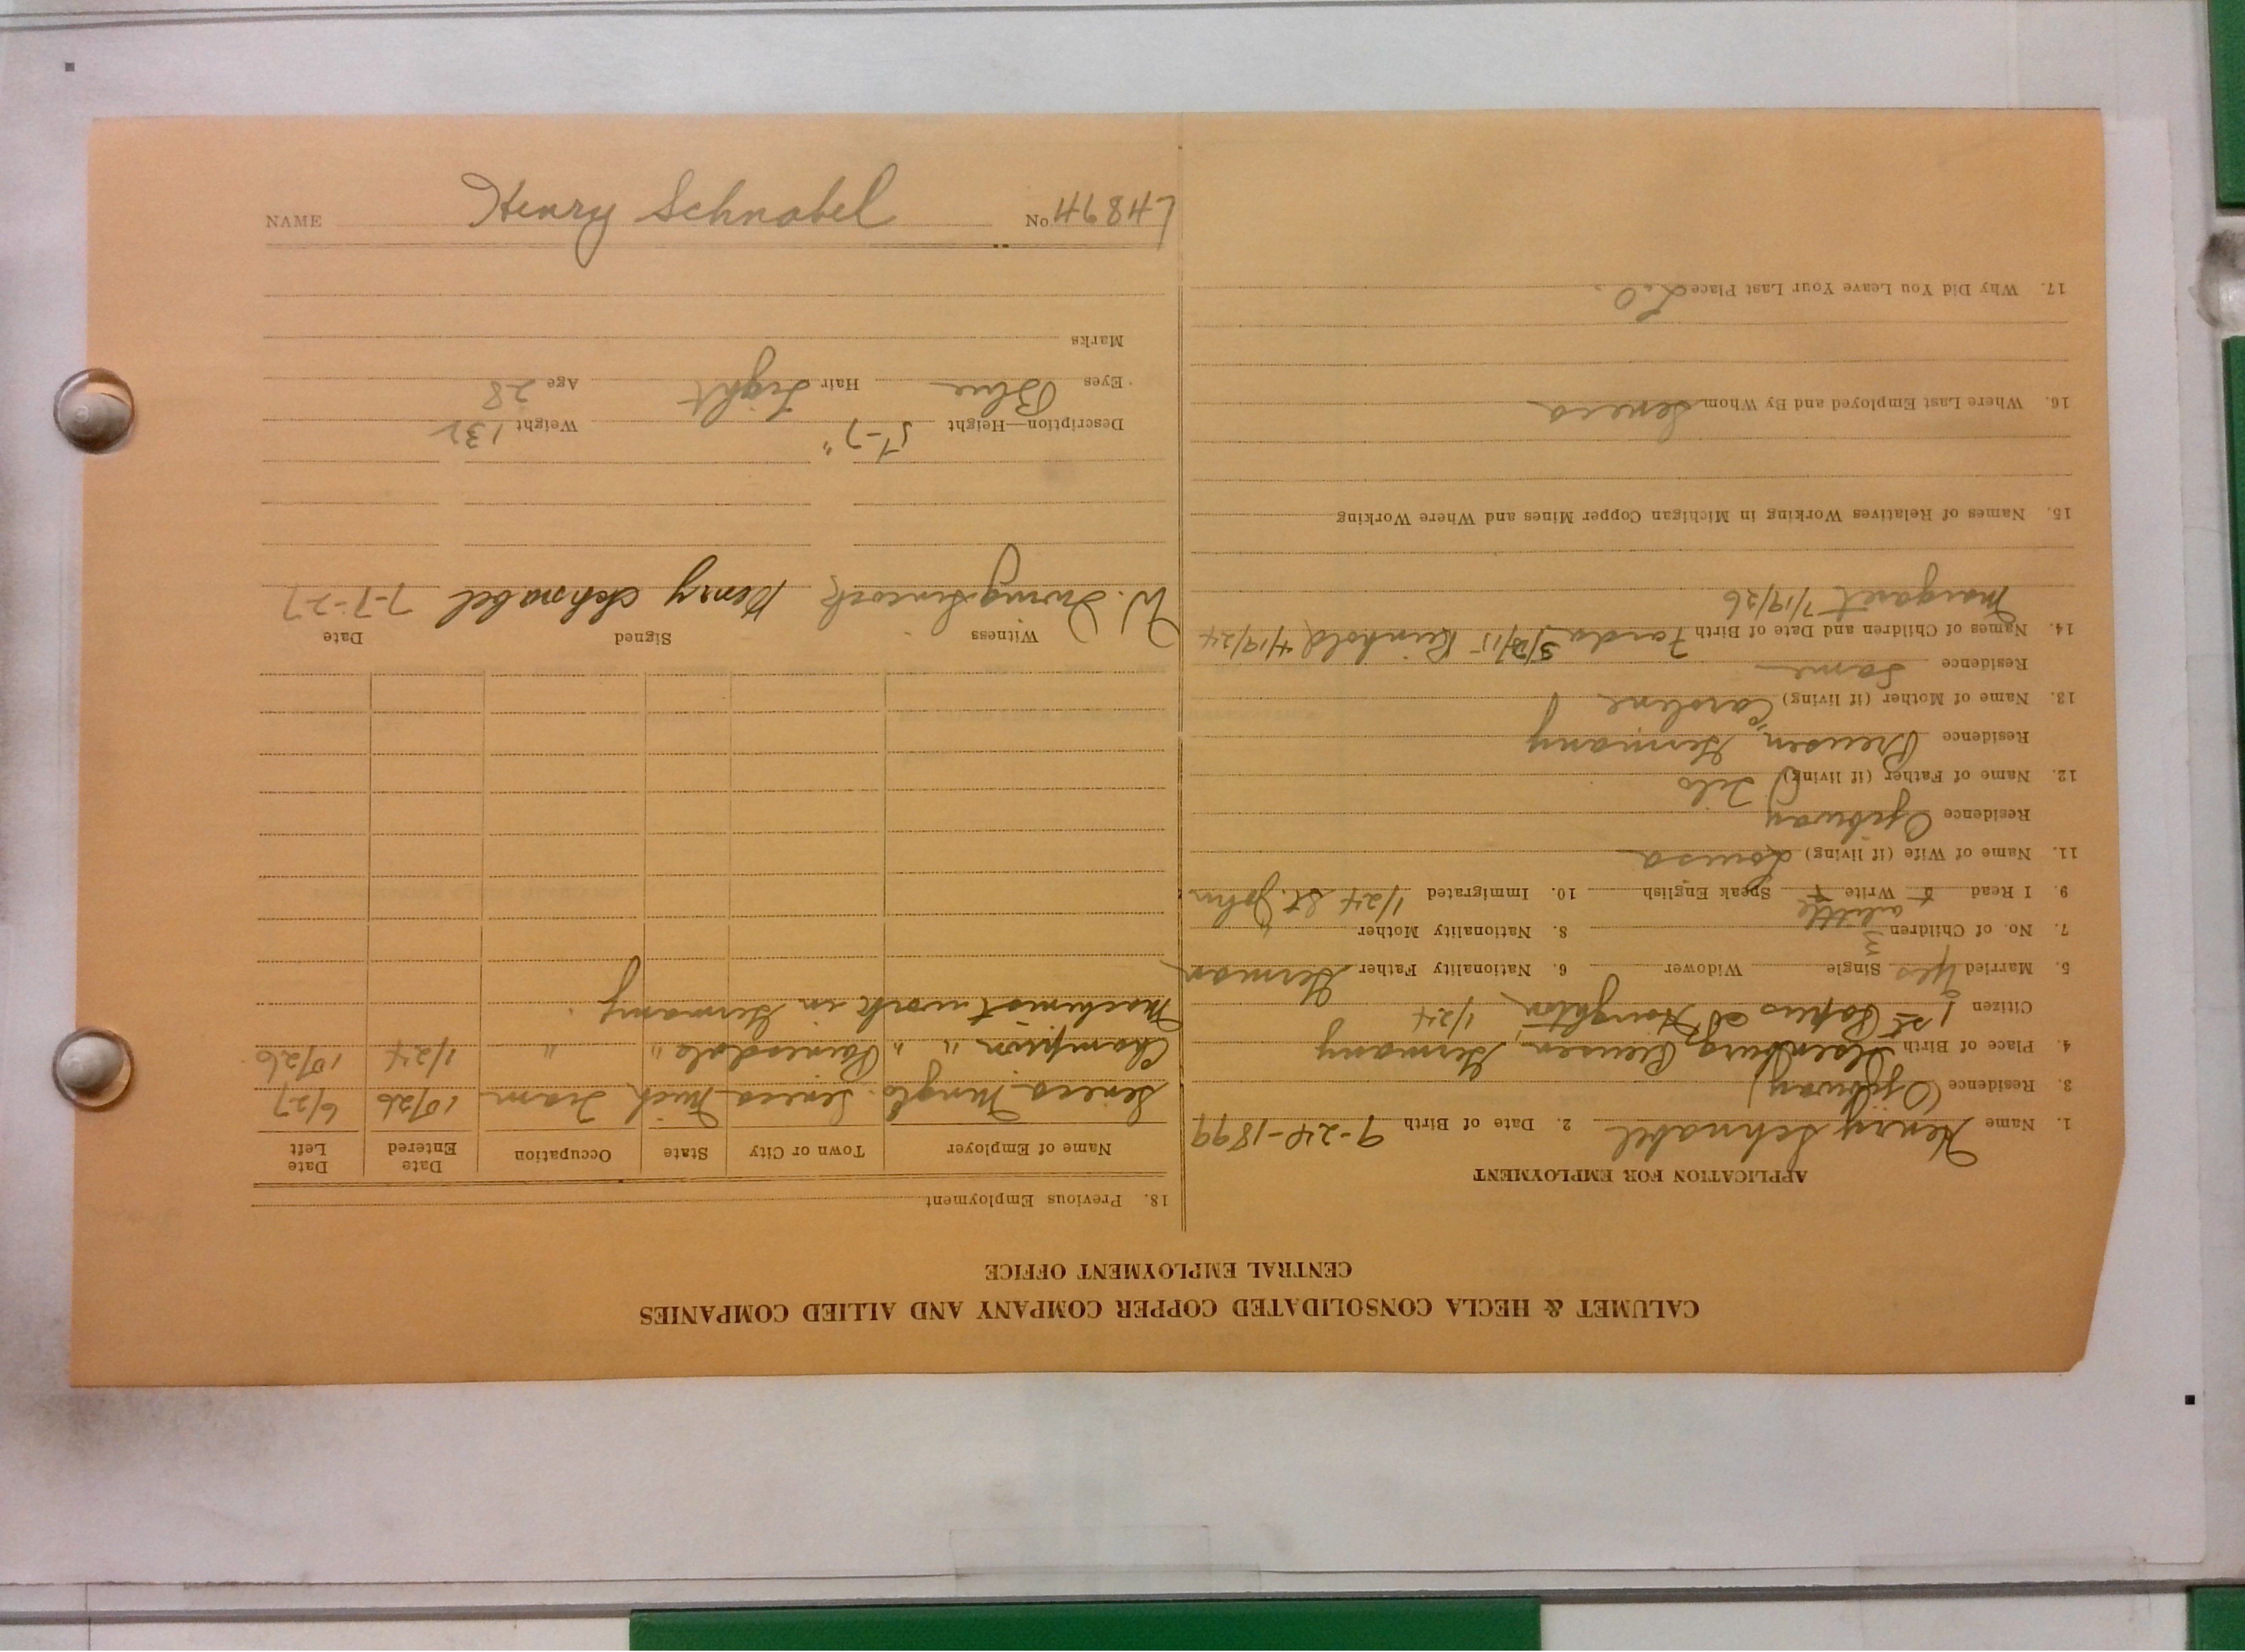 CALUMET & HECLA CONSOLIDATED COPPER COMPANY AND ALLIED COMPANIES
CENTRAL EMPLOYMENT OFFICE
APPLICATION FOR EMPLOYMENT
1. Name Henry Schnabel 2. Date of Birth 9-24-1899
3. Residence Ojibway
4. Place of Birth Preusen, Germany
Citizen 1st Papers at Houghton 1/24
5. Married Yes Single Widower 6. Nationality Father German
7. No. of Children 3 8. Nationality Mother "
a little
9. I Read & Write Speak English 10. Immigrated 1/24 St. John
11. Name of Wife (if living) Louisa
Residence Ojibway
12. Name of Father (if living)
Residence Preusen, Germany
13. Name of Mother (if living) Caroline
Residence Same
14. Names of Children and Date of Birth Reinhold 4/19/24
Margaret 7/19/26
15. Names of Relatives Working in Michigan Copper Mines and Where Working
16. Where Last Employed and By Whom Seneca
17. Why Did You Leave Your Last Place
18. Previous Employment
Name of Employer Town or City State Occupation Date Entered Date Left
Seneca Mng Co. Seneca Mich Tram 10/26 6/27
Champion " " Painesdale " " 1/24 10/26
Machinist work in Germany.
Witness Signed Date
W. Irving Henry Schnabel 7-7-27
Description—Height 5'-7" Weight 132
Eyes Blue Hair Light Age 28
Marks
NAME Henry Schnabel No.